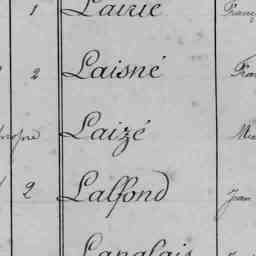 1 Lairie Franç
2 Laisné Fra
Laizé
2 Lalfond Jean
Langlais